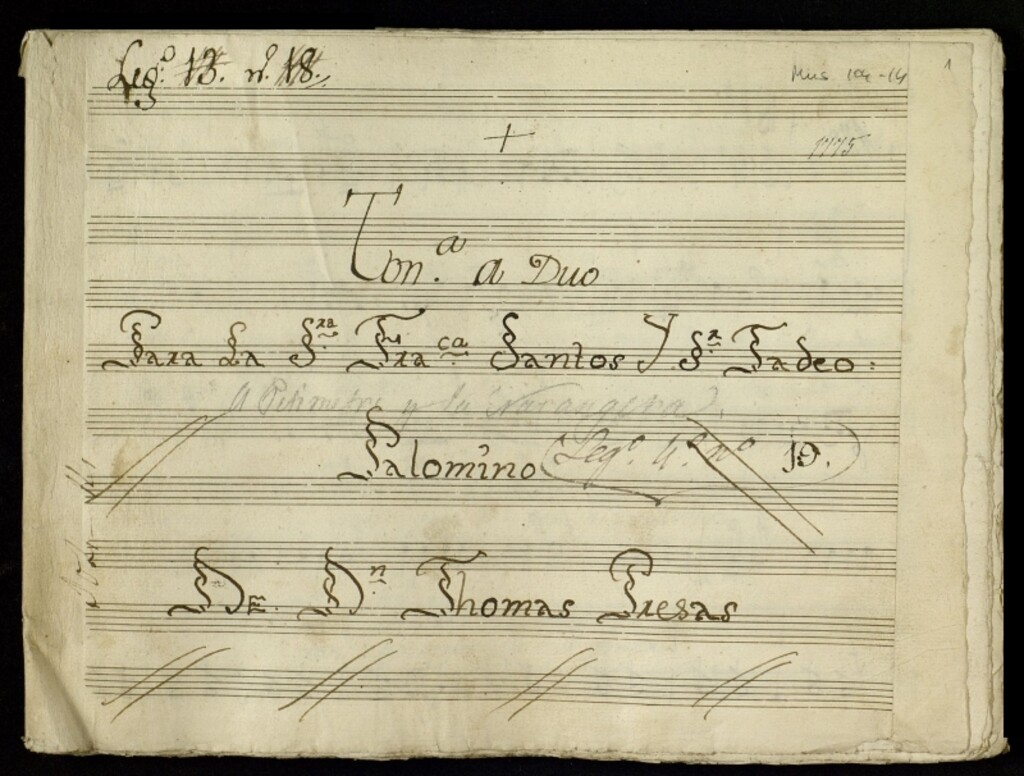 Leg.º 13. n.º 18.
Mus 104-14
1
+
1775
Ton.ª a Duo
Para La S.ra Fra.ca Santos Y S.r Tadeo:
El Petimetre y la Narangera
Palomino (Leg.º 4.º nº 10.)
De. D.n Thomas Presas